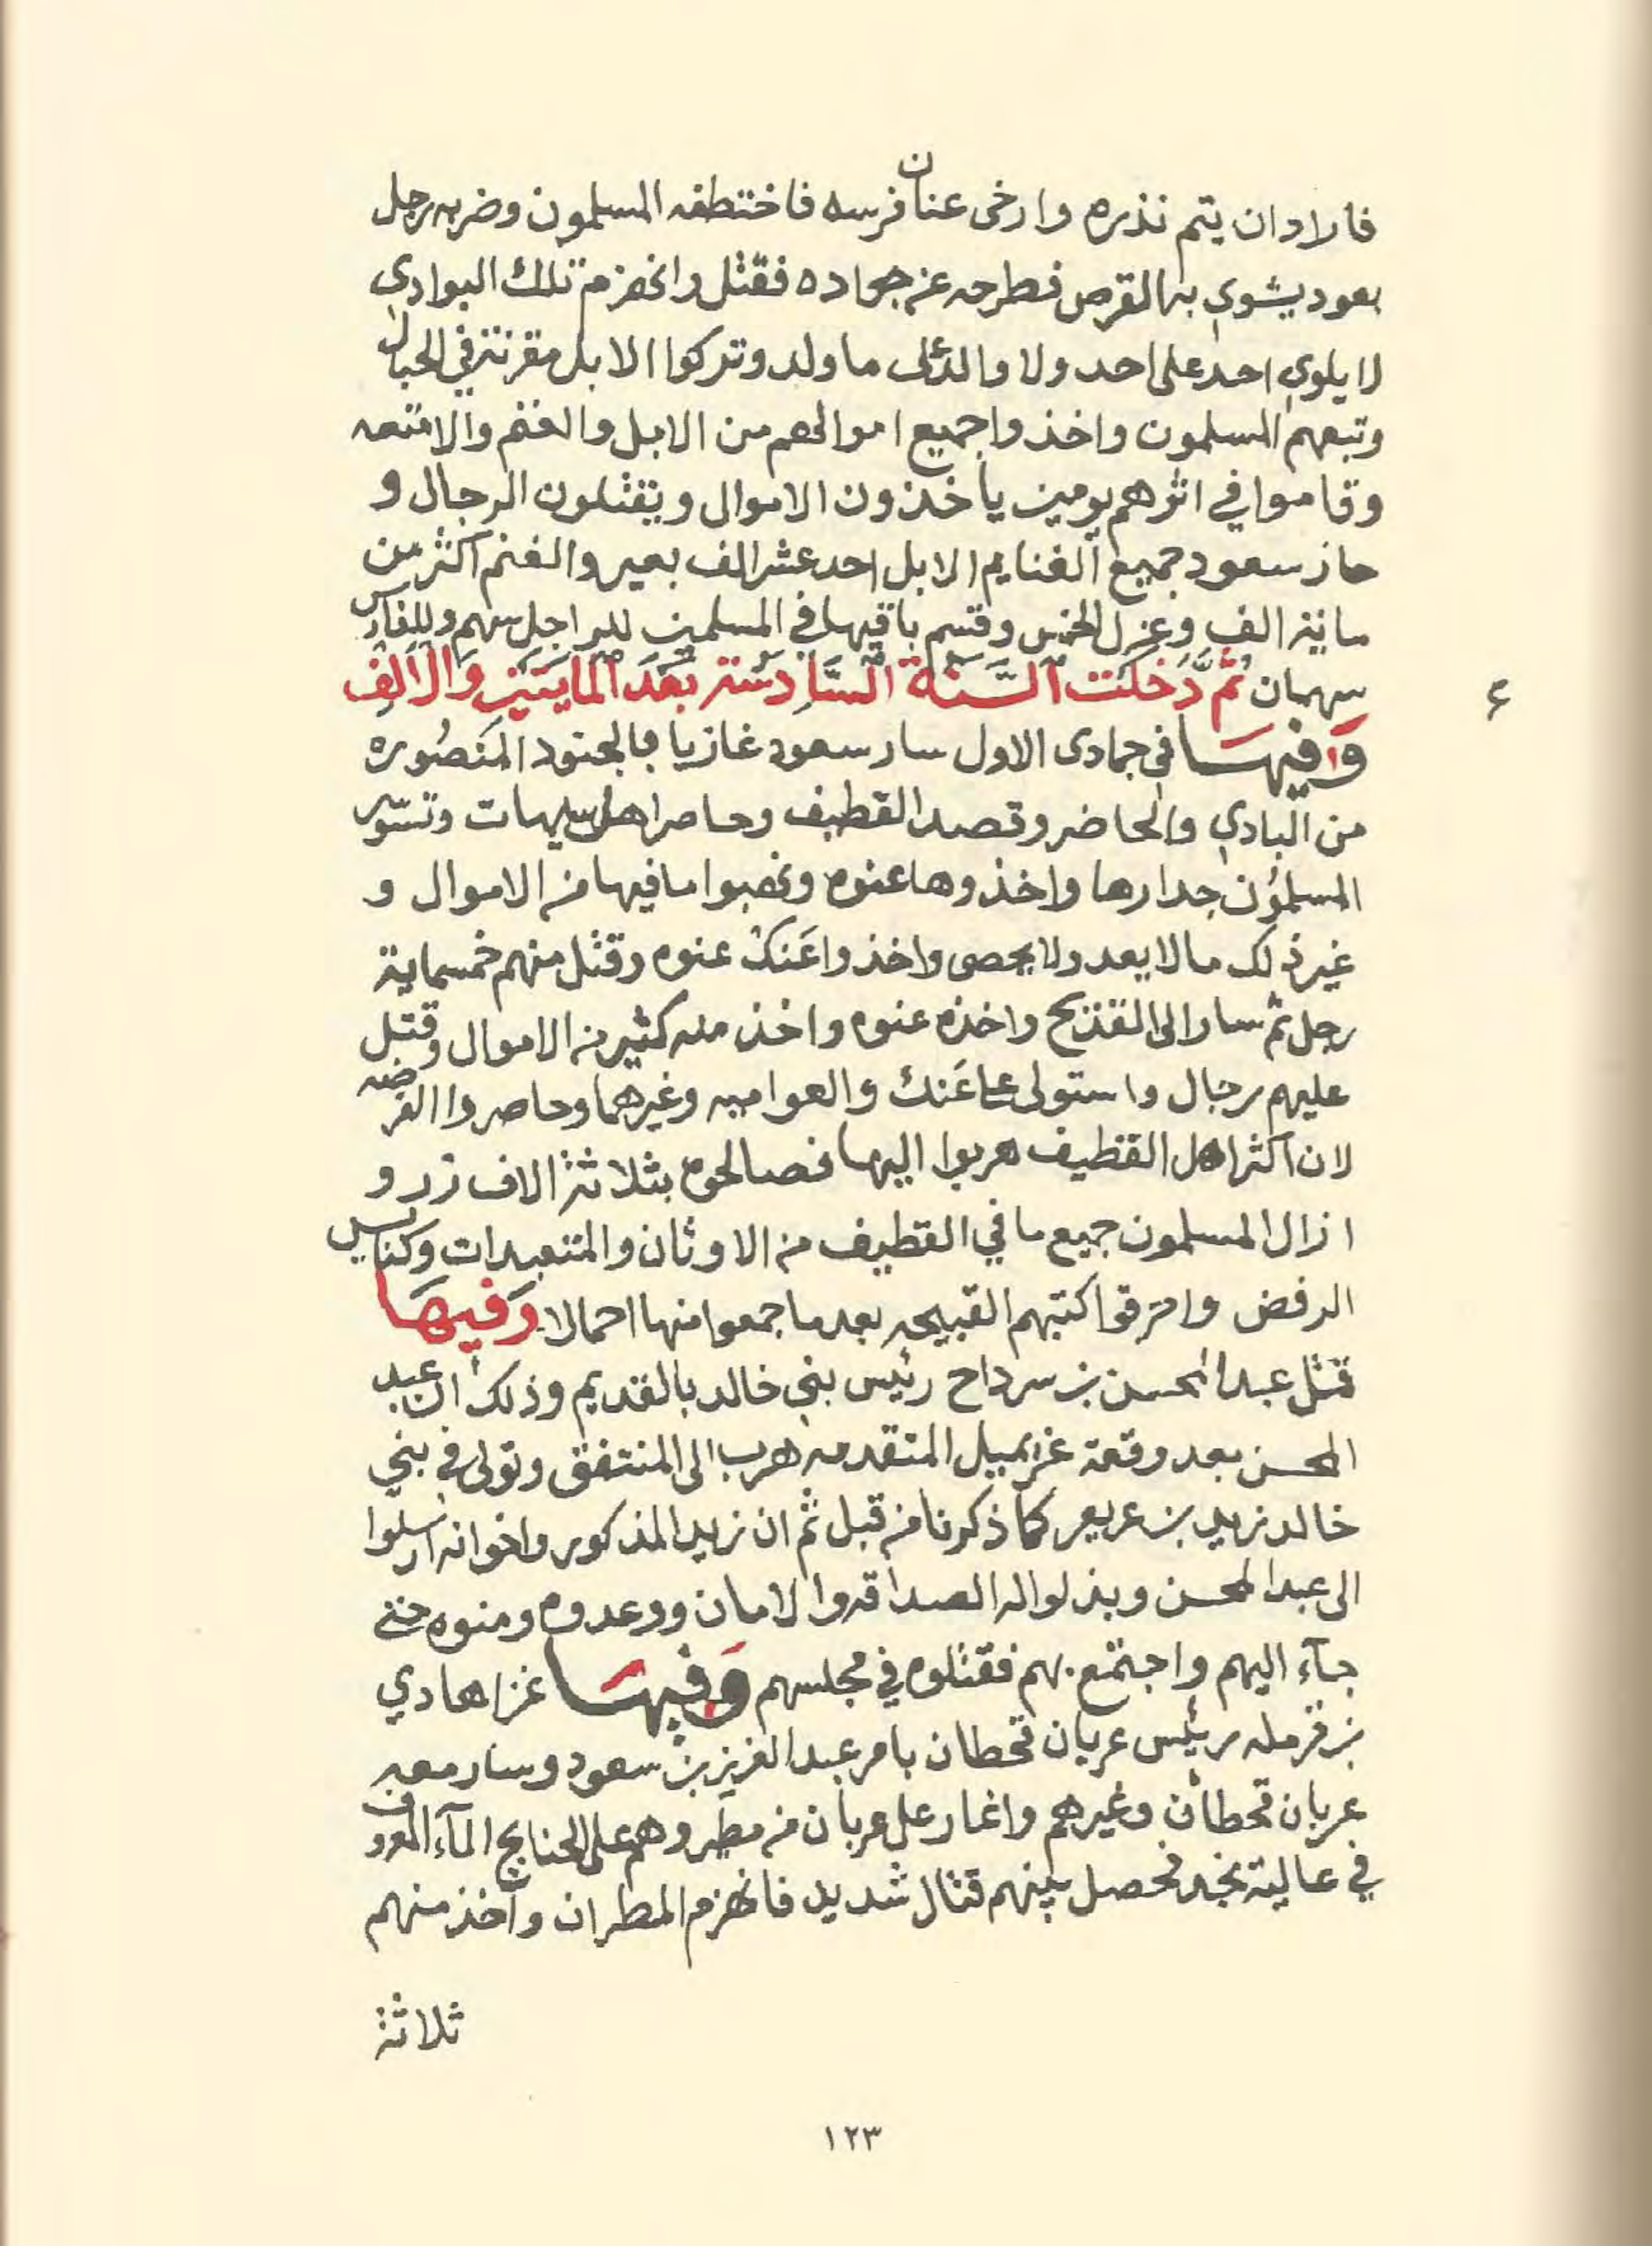 فاراد ان يتم نذره وارخى عنان فرسه فاختطفه المسلمون وضربه رجل
بعود يشوى به القرص فطرحه عن جواده فقتل وانهزم تلك البوادي
لا يلوي احد على احد ولا والد على ما ولد وتركوا الابل مقرنة في الحبال
وتبعهم المسلمون واخذوا جميع اموالهم من الابل والغنم والامتعه
وقاموا في اثرهم يومين ياخذون الاموال ويقتلون الرجال و
حاز سعود جميع الغنايم الابل احد عشر الف بعير والغنم اكثر من
ماية الف وعزل الخمس وقسم باقيها في المسلمين للراجل سهم وللفارس
سهمان ثُمَّ دَخَلَت السَّنَة السَّادِسَة بَعْدَ المايَتَيْن وَالاَلف
٦
وَفِيهَا في جمادى الاول سار سعود غازيا بالجنود المنصوره
من البادي والحاضر وقصد القطيف وحاصر اهل سيهات وتسور
المسلمون جدارها واخذوها عنوه ونهبوا ما فيها من الاموال و
غير ذلك ما لا يعد ولا يحصى واخذوا عَنك عنوه وقتل منهم خمسماية
رجل ثم سار الى القديح واخذه عنوه واخذ منه كثير من الاموال وقتل
عليهم رجال واستولى على عَنك والعواميه وغيرهما وحاصروا الفرضه
لان اكثر اهل القطيف هربوا اليها فصالحوه بثلاثة الاف زر و
ازال المسلمون جميع ما في القطيف من الاوثان والمتعبدات وكنايس
الرفض واحرقوا كتبهم القبيحه بعد ما جمعوا منها احمالا وَفيهَا
قتل عبد المحسن بن سرداح رئيس بني خالد بالقديم وذلك ان عبد
المحسن بعد وقعة غريميل المتقدمه هرب الى المنتفق وتولى في بني
خالد زيد بن عريعر كما ذكرنا من قبل ثم ان زيد المذكور واخوانه ارسلوا
الى عبد المحسن وبذلوا له الصداقه والامان ووعدوه ومنوه حتى
جآء اليهم واجتمع بهم فقتلوه في مجلسهم وَفيهَا غزا هادي
بن قرمله رئيس عربان قحطان بامر عبد العزيز بن سعود وسار معه
عربان قحطان وغيرهم واغار على عربان من مطير وهم على الجنايح المآء المعروف
في عالية نجد فحصل بينهم قتال شديد فانهزم المطران واخذ منهم
ثلاثة
١٢٣